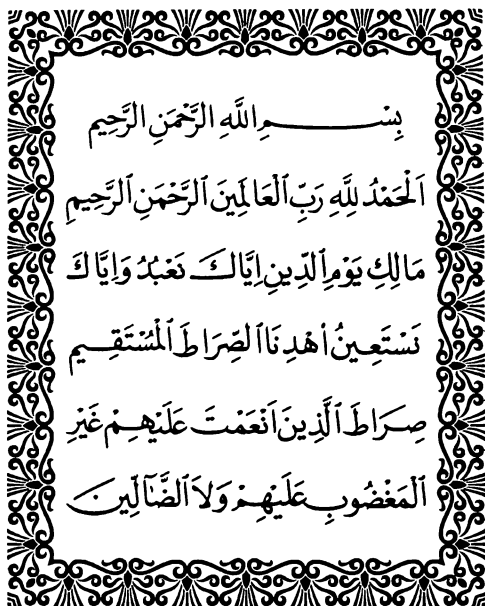 بِسْــــــمِ اللَّهِ الرَّحْمَنِ الرَّحِيم
اَلْحَمْدُ لِلَّهِ رَبِّ الْعَالَمِينَ الرَّحْمَنِ الرَّحِيمِ
مَالِكِ يَوْمِ الدِّينِ اِيَّاكَ نَعْبُدُ وَاِيَّاكَ
نَسْتَعِينُ اهْدِنَا الصِّرَاطَ الْمُسْتَقِيم
صِرَاطَ الَّذِينَ اَنْعَمْتَ عَلَيْهِمْ غَيْرِ
الْمَغْضُوبِ عَلَيْهِمْ وَلاَ الضَّآلِّينَ